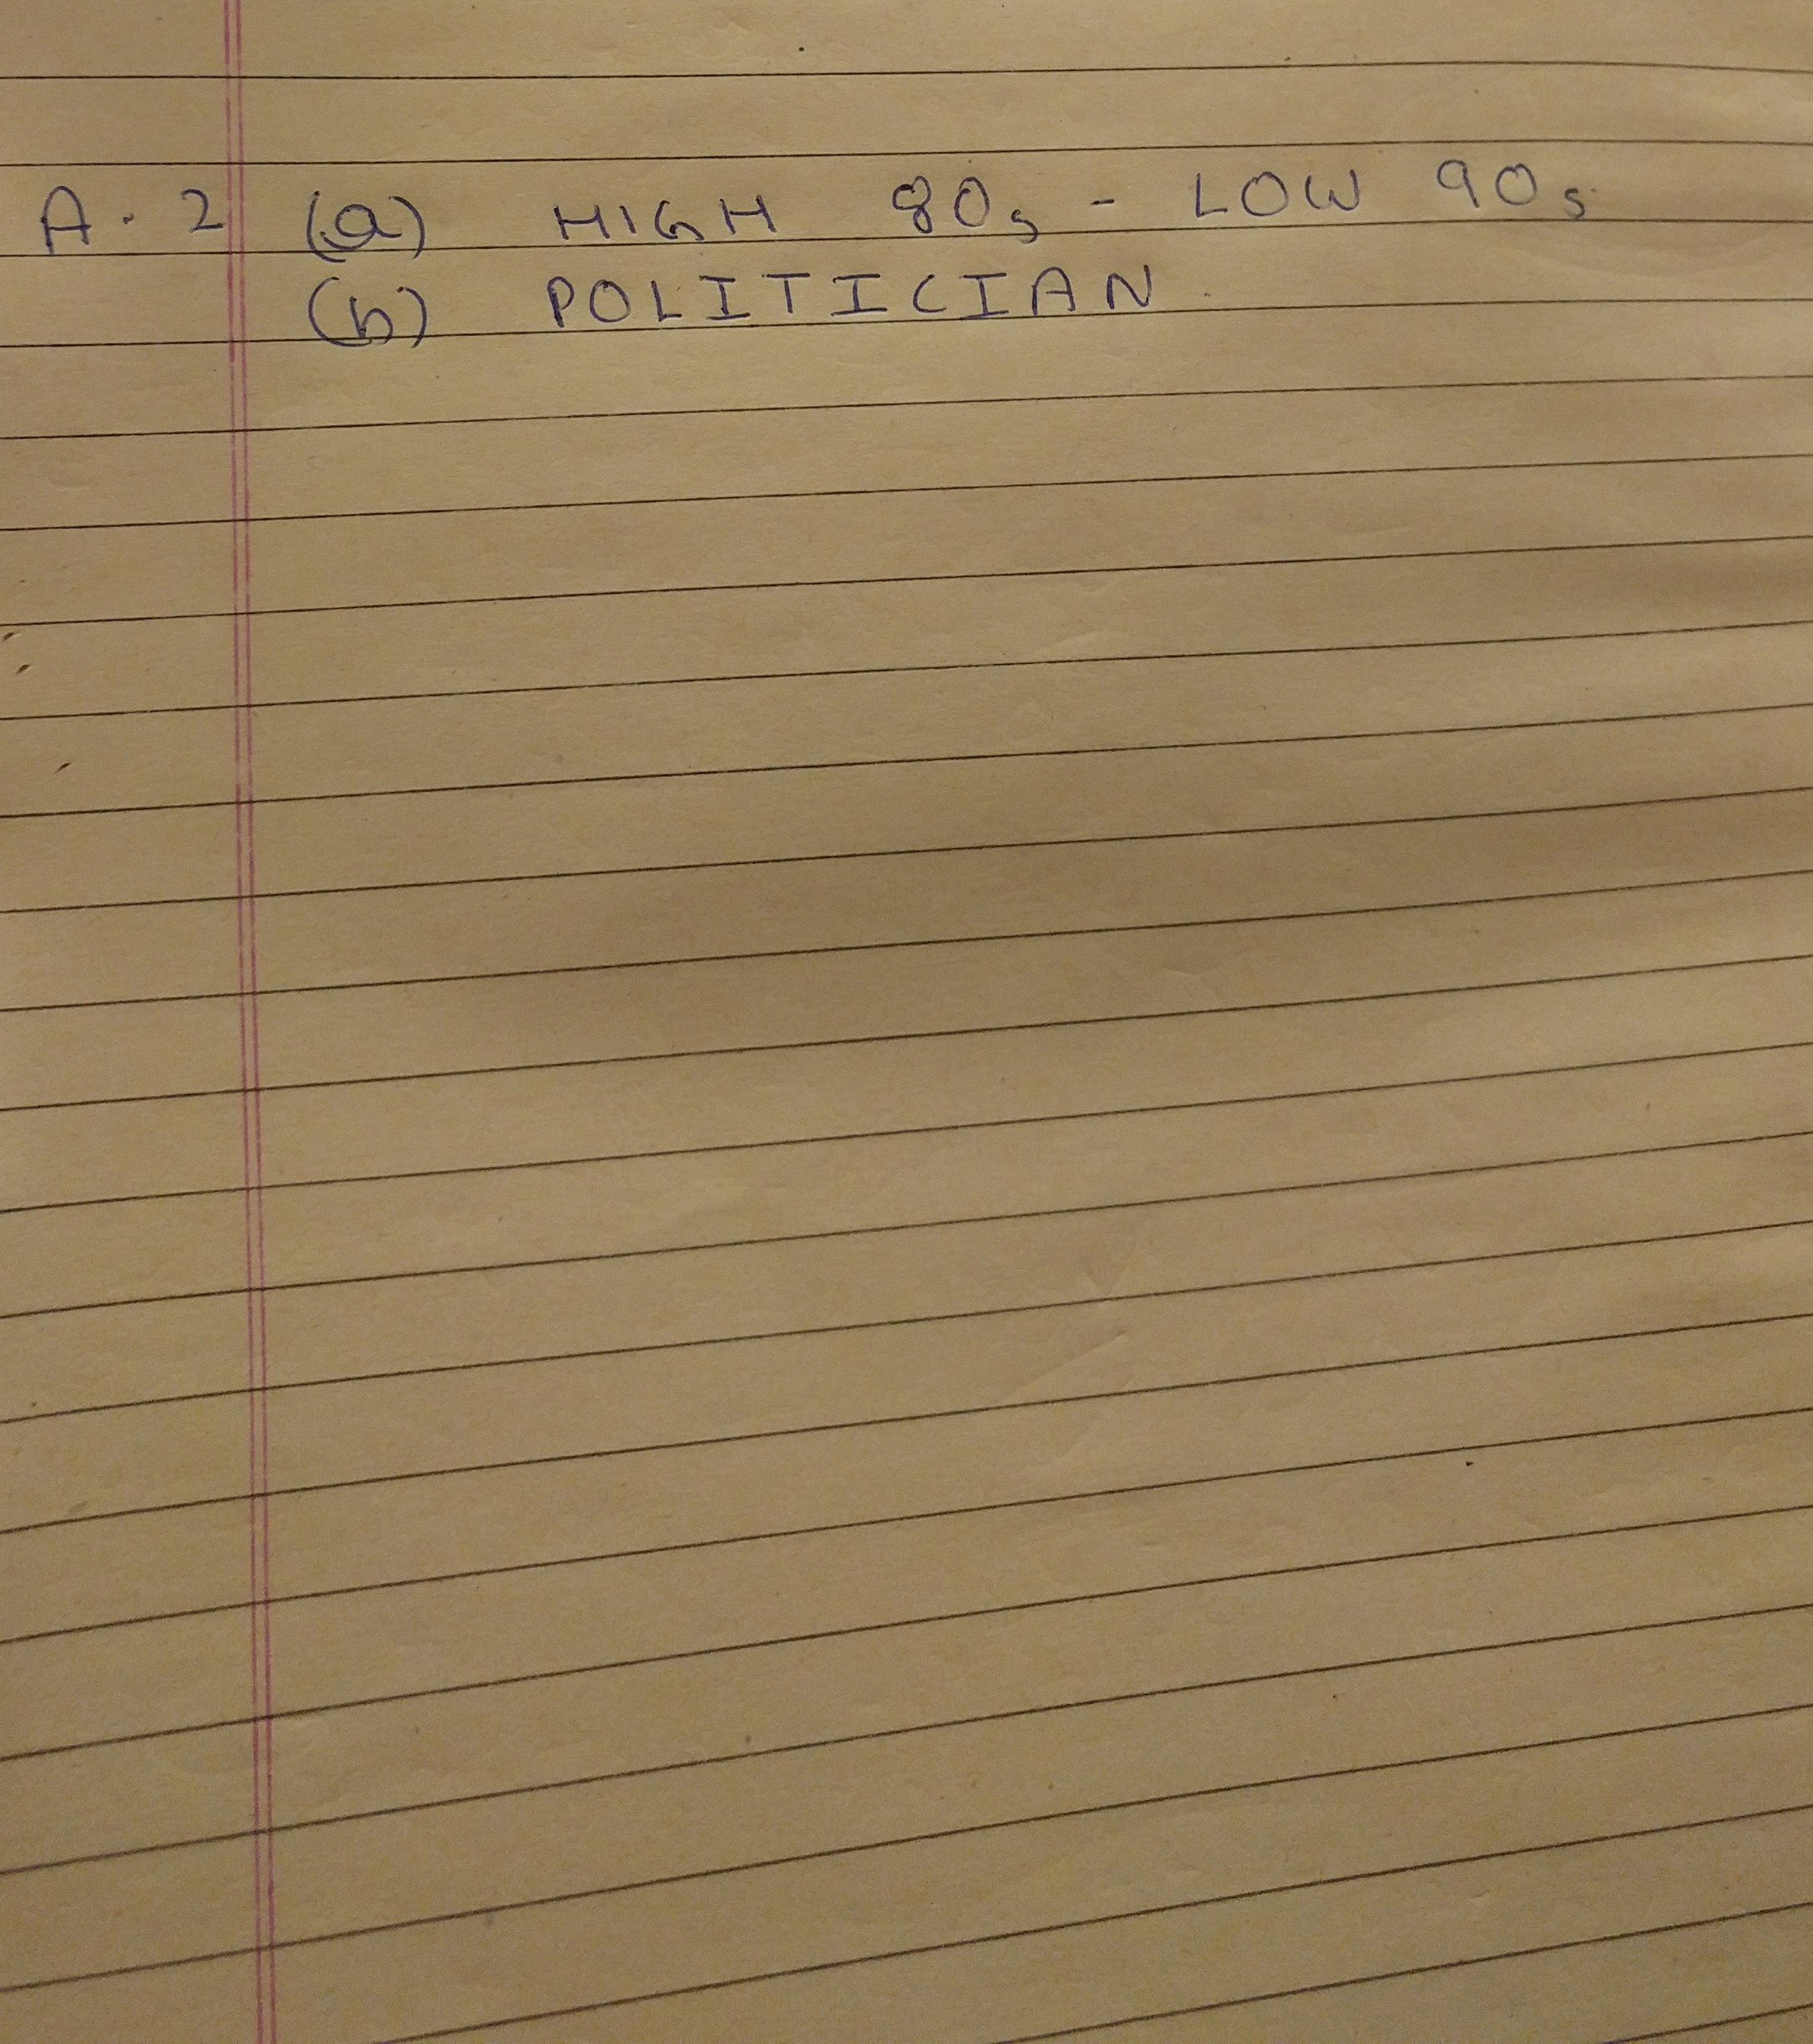 A. 2 (a) HIGH 80s - LOW 90s
(b) POLITICIAN.